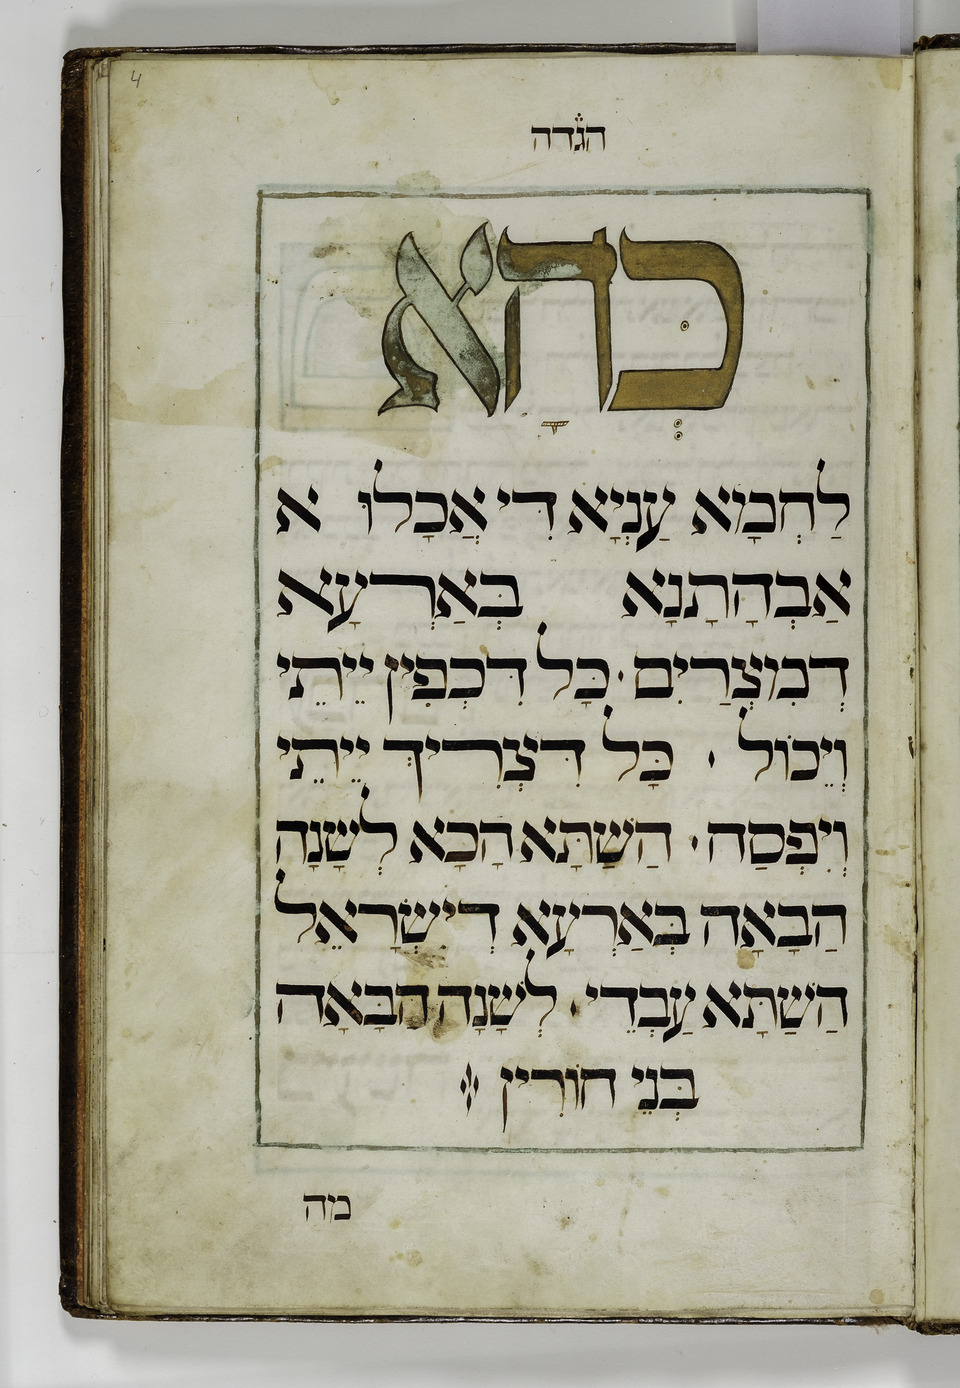 4
הגדה
כְּהָא
לַחְמָא עַנְיָא דִּי אֲכָלוּ א
אַבְהָתָנָא בְּאַרְעָא
דְמִצְרַיִם · כָּל דִּכְפִין יֵיתֵי
וְיֵכוֹל · כָּל דִּצְרִיךְ יֵיתֵי
וְיִפְסַח · הַשַּׁתָּא הָכָא לְשָׁנָה
הַבָּאָה בְּאַרְעָא דְיִשְׂרָאֵל
הַשַּׁתָּא עַבְדֵי · לְשָׁנָה הַבָּאָה
בְּנֵי חוֹרִין
מה